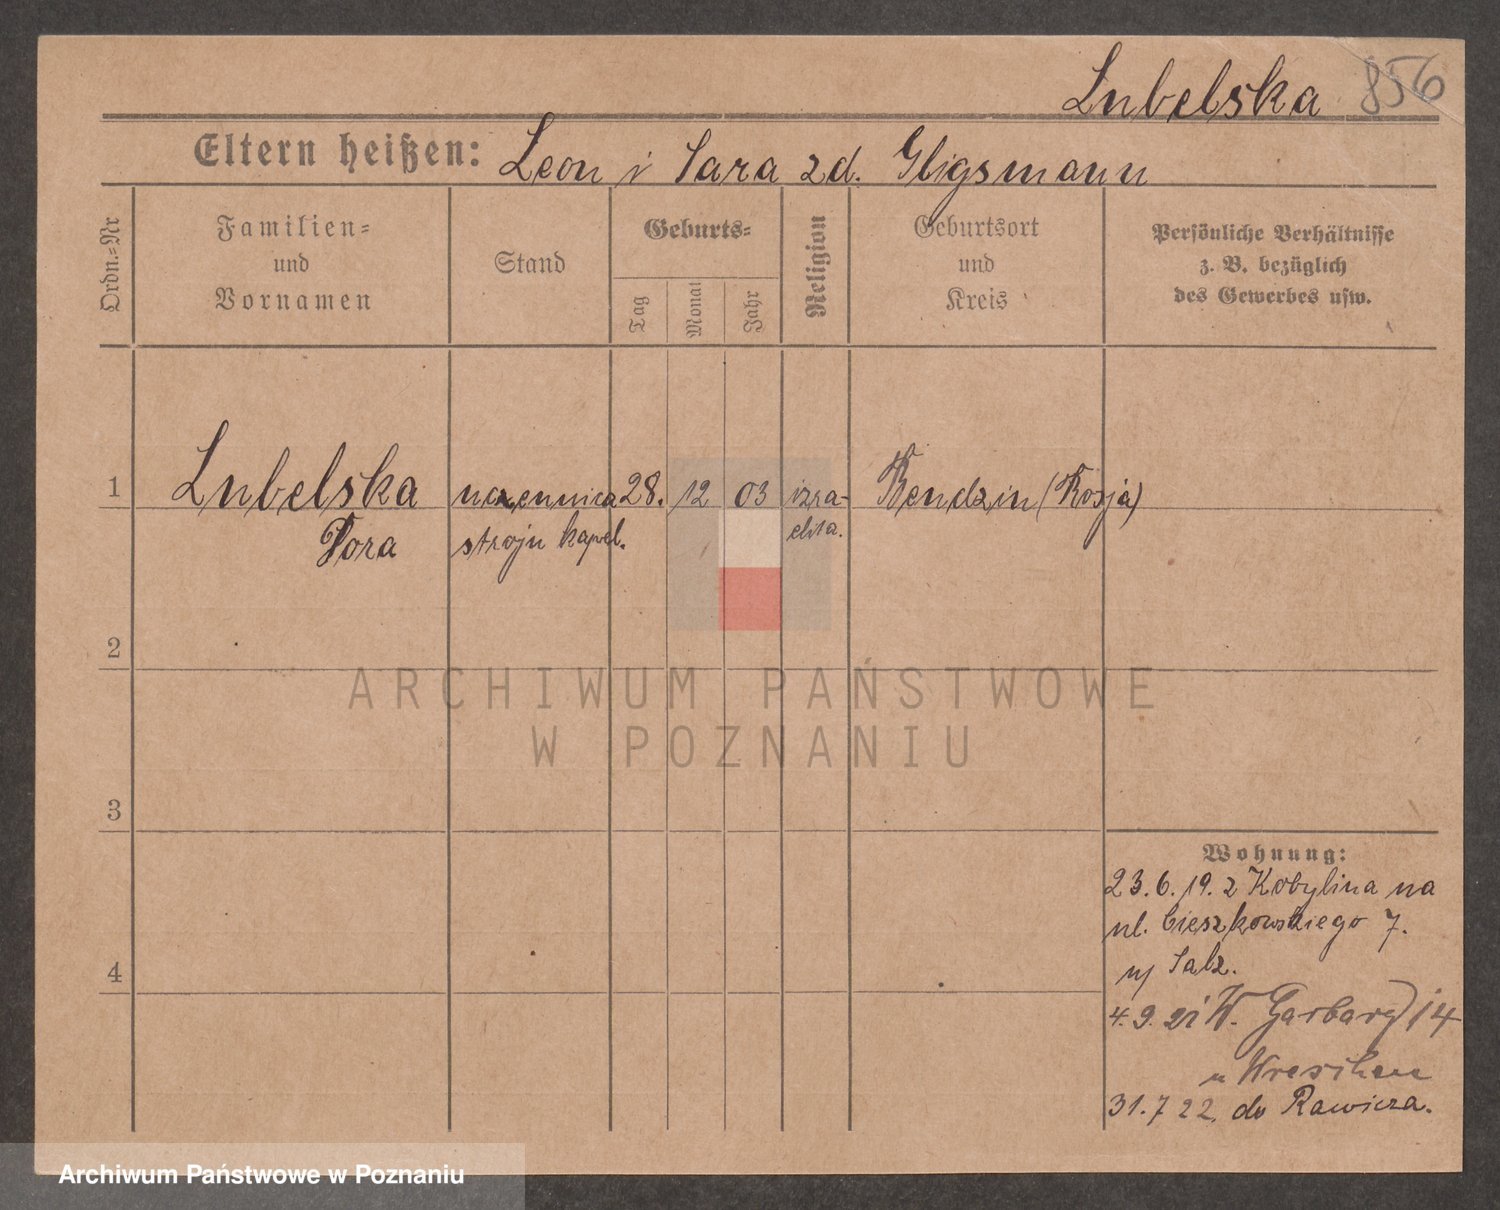 Lubelska 856
Eltern heißen: Leon i Sara zd. Gligsmann
Ordn.=Nr
Familien=
und
Vornamen
Stand
Geburts=
Tag
Monat
Jahr
Religion
Geburtsort
und
Kreis
Persönliche Verhältnisse
z. B. bezüglich
des Gewerbes usw.
1 Lubelska uczennica 28. 12 03 izra- Bendzin (Rosja)
stroju kapel. elita.
2
ARCHIWUM PAŃSTWOWE
W POZNANIU
3
4
Wohnung:
23.6.19. z Kobylina na
ul. Cieszkowskiego 7.
u/ Salz.
4.9.21 W. Garbary 14
u
31.7 22. do Rawicza.
Archiwum Państwowe w Poznaniu